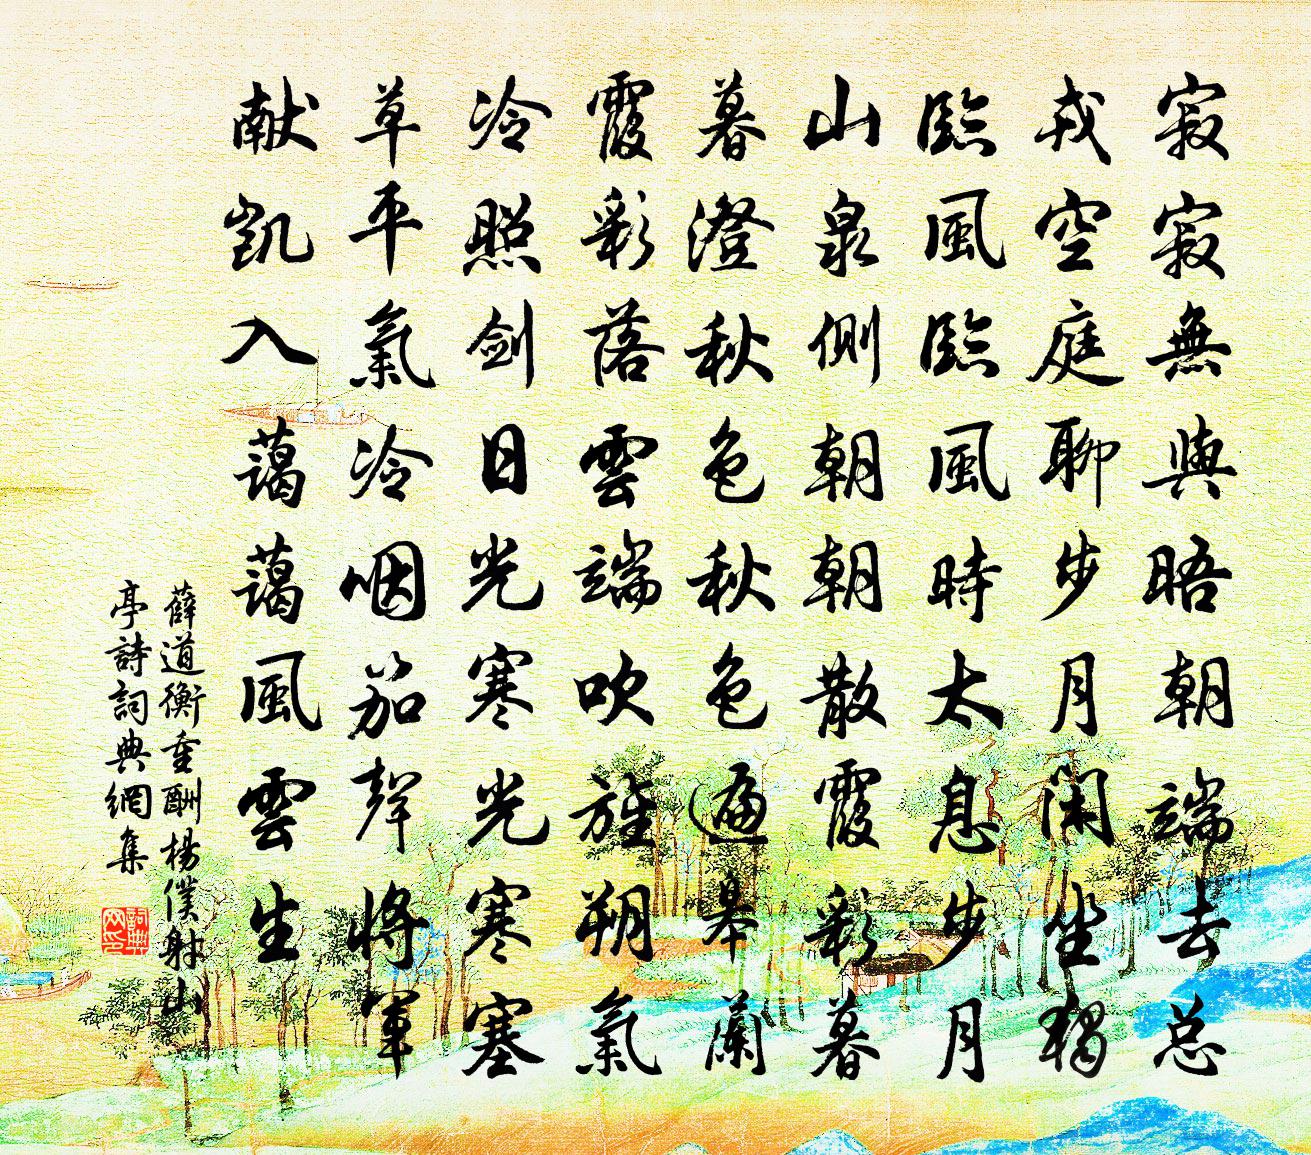 寂寂無與晤朝端去总
戎空庭聊步月閑坐獨
臨風臨風時太息步月
山泉側朝朝散霞彩暮
暮澄秋色秋色遍皋蘭
霞彩落雲端吹旌朔氣
冷照剑日光寒光寒塞
草平氣冷咽笳聲將軍
献凱入藹藹風雲生
薛道衡重酬楊僕射山
亭詩詞典網集
詞典
网印